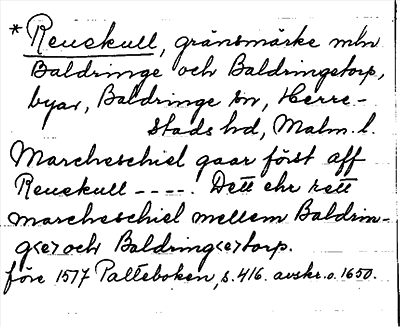 * Reuekull, gränsmärke mln
Baldringe och Baldringetorp,
byar, Baldringe sn, Herre-
stads hd, Malm. l.
Marcheschiel gaar först aff
Reuekull ----. Dett ehr rett
marcheschiel mellem Baldrin-
g<er och Baldring<er torp.
före 1577 Palteboken, s. 416. avskr. o. 1650.